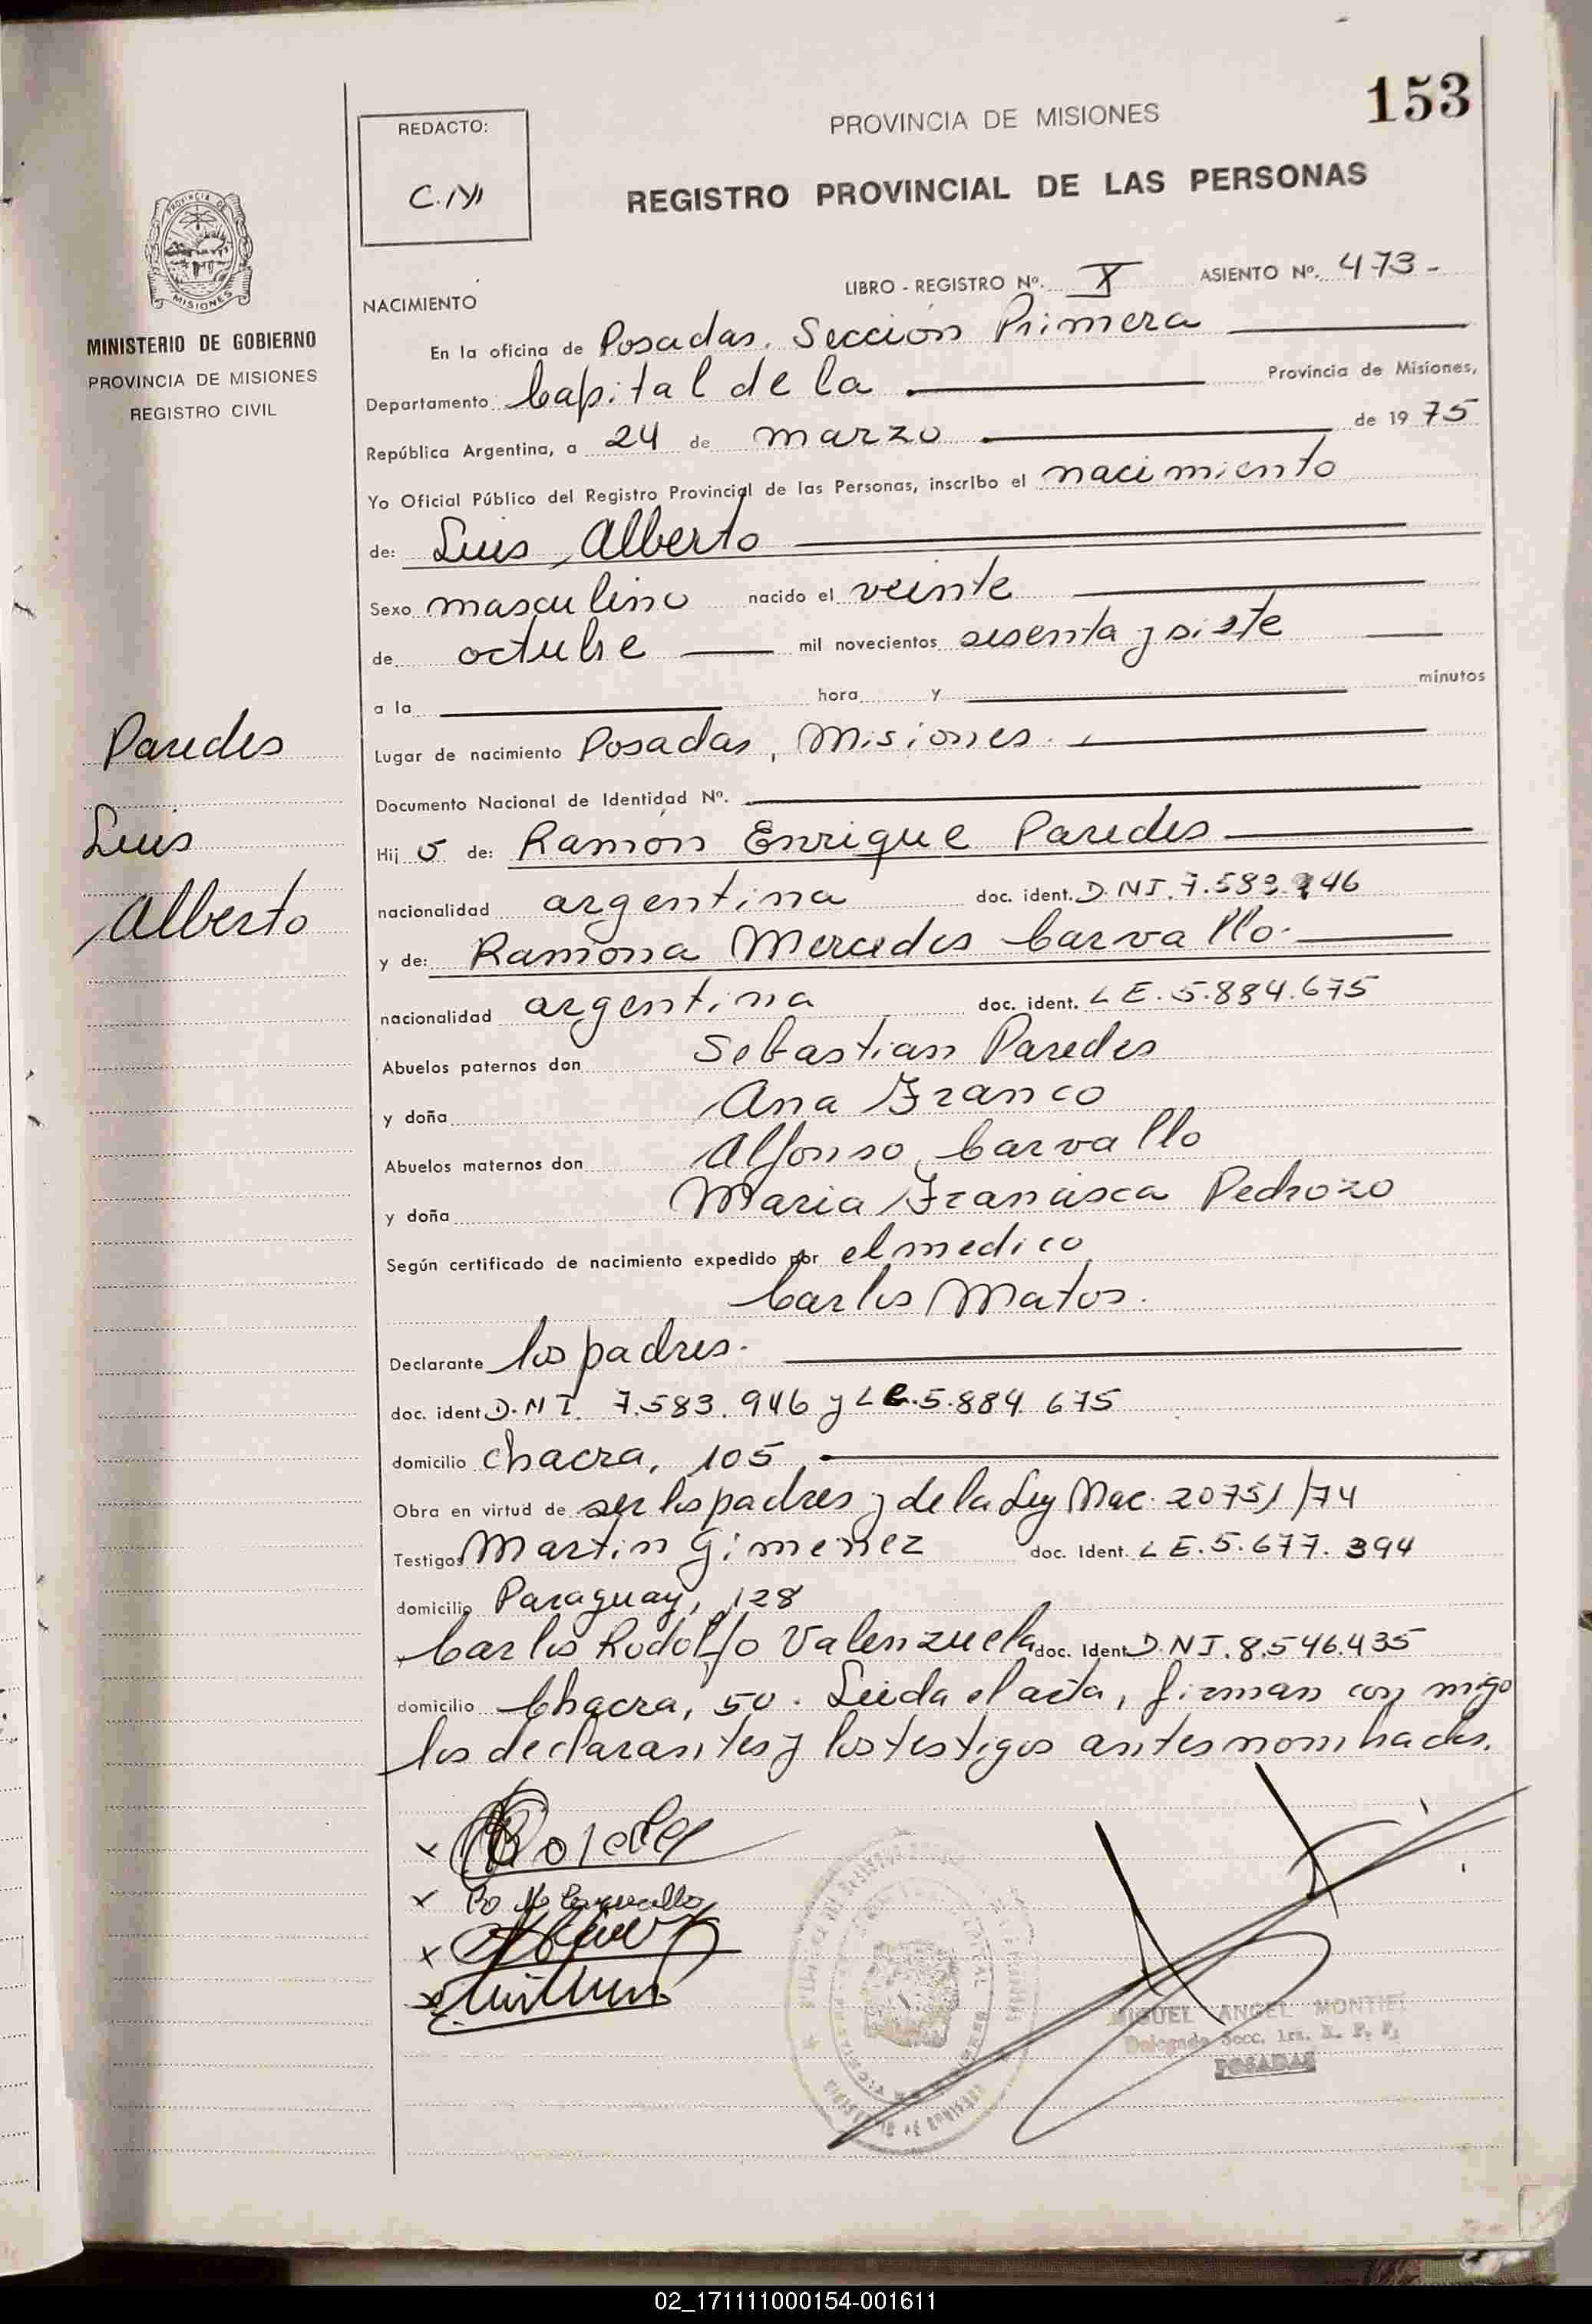 153
REDACTO:
PROVINCIA DE MISIONES
REGISTRO PROVINCIAL DE LAS PERSONAS
LIBRO - REGISTRO Nº. X ASIENTO Nº. 473-
NACIMIENTO
MISIONES
MINISTERIO DE GOBIERNO
PROVINCIA DE MISIONES
REGISTRO CIVIL
En la oficina de Posadas. Sección Primera
Departamento Capital de la Provincia de Misiones,
República Argentina, a 24 de marzo de 1975
Yo Oficial Público del Registro Provincial de las Personas, inscribo el nacimiento
de: Luis Alberto
Sexo masculino nacido el veinte
de octubre mil novecientos sesenta y siete
a la hora y minutos
Lugar de nacimiento Posadas, Misiones.
Documento Nacional de Identidad Nº.
Paredes
Luis
Alberto
Hijo de: Ramón Enrique Paredes
nacionalidad argentina doc. ident. D.N.I. 7.583.946
y de: Ramona Mercedes Carvallo.
nacionalidad argentina doc. ident. L E. 5.884.675
Abuelos paternos don Sebastian Paredes
y doña Ana Franco
Abuelos maternos don Alfonso Carvallo
y doña Maria Francisca Pedrozo
Según certificado de nacimiento expedido por el medico
Carlos Matos.
Declarante los padres.
doc. ident D.N I. 7.583.946 y L e. 5.884.675
domicilio chacra, 105
Obra en virtud de ser los padres y de la Ley Nac. 20751/74
Testigos Martin Gimenez doc. Ident. L E. 5.677.394
domicilio Paraguay, 128
Carlos Rodolfo Valenzuela doc. Ident D.N I. 8.546.435
domicilio Chacra, 50. Leida el acta, firman con migo
los declarantes y los testigos antes nombrados.
MIGUEL ANGEL MONTIEL
Delegado Secc. 1ra. R. P. P.
POSADAS
02_171111000154-001611